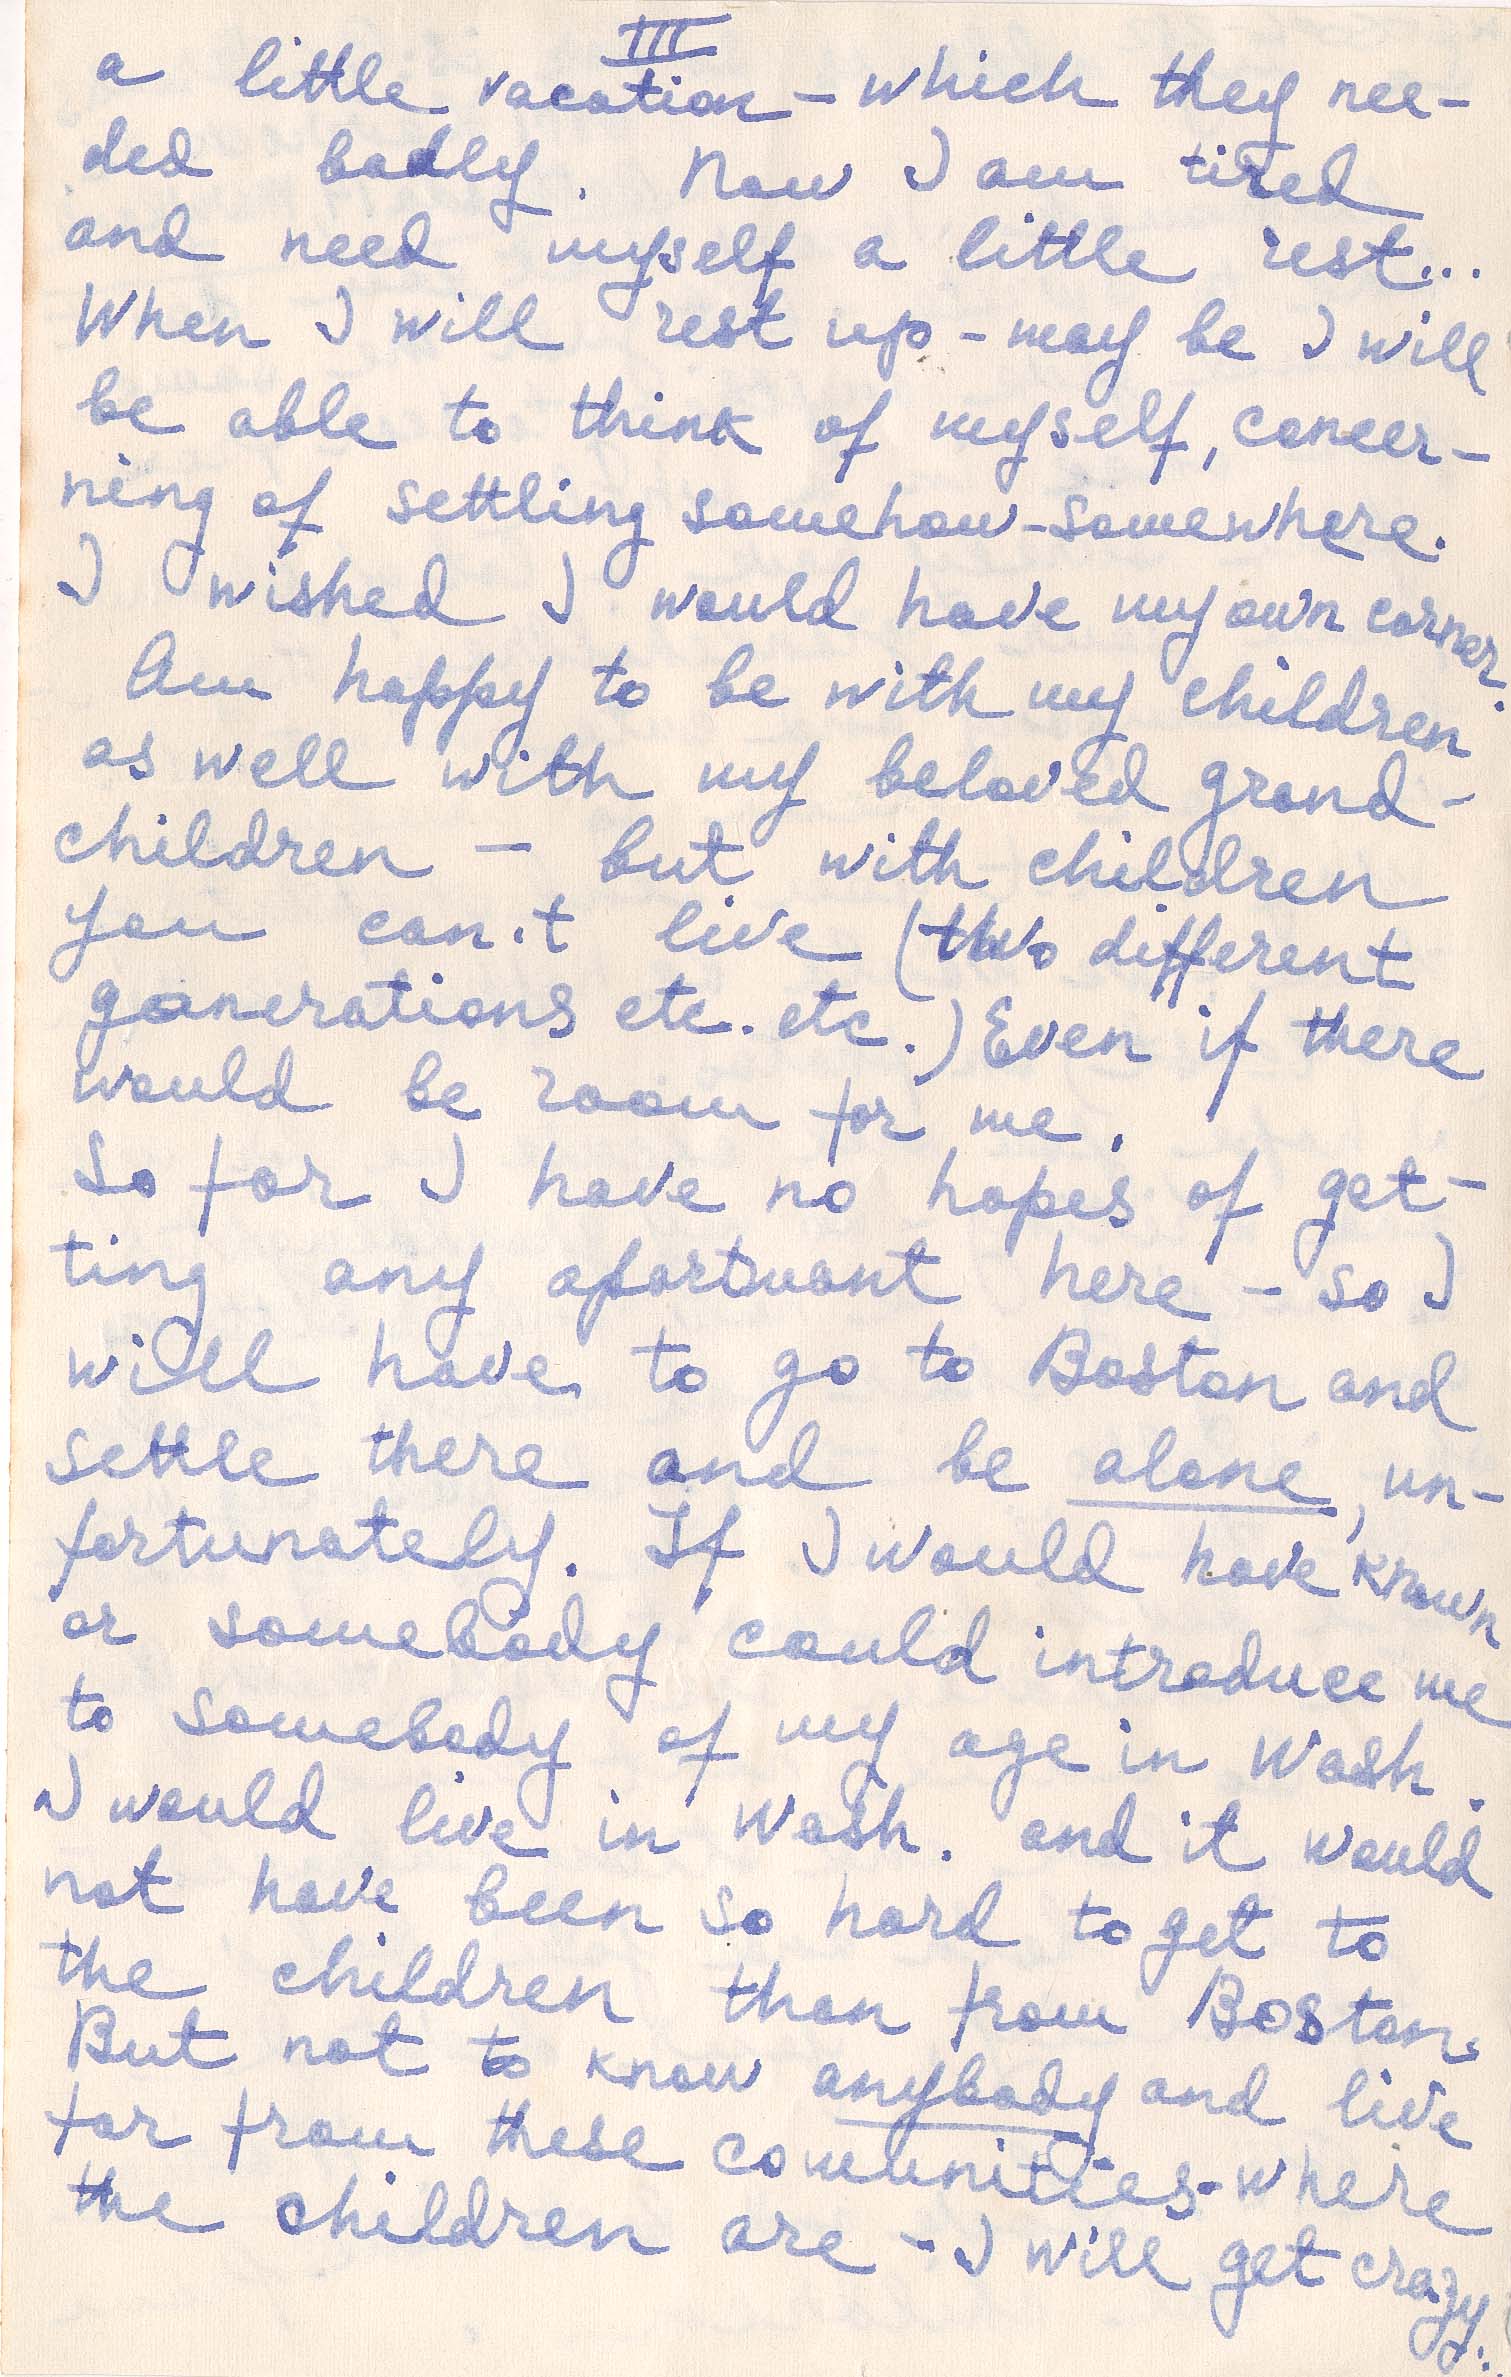 III
a little vacation - which they nee-
ded badly. Now I am tired
and need myself a little rest...
When I will rest up - may be I will
be able to think of myself, concer-
ning of settling somehow-somewhere.
I wished I would have my own corner.
Am happy to be with my children
as well with my beloved grand-
children - but with children
you can't live (two different
ganerations etc. etc.) Even if there
would be room for me.
So far I have no hopes of get-
ting any apartmant here - so I
will have to go to Boston and
settle there and be alone, un-
fortunately. If I would have known
or somebody could introduce me
to somebody of my age in Wash.
I would live in Wash. and it would
not have been so hard to get to
the children than from Boston.
But not to know anybody and live
far from these comunities - where
the children are - I will get crazy.